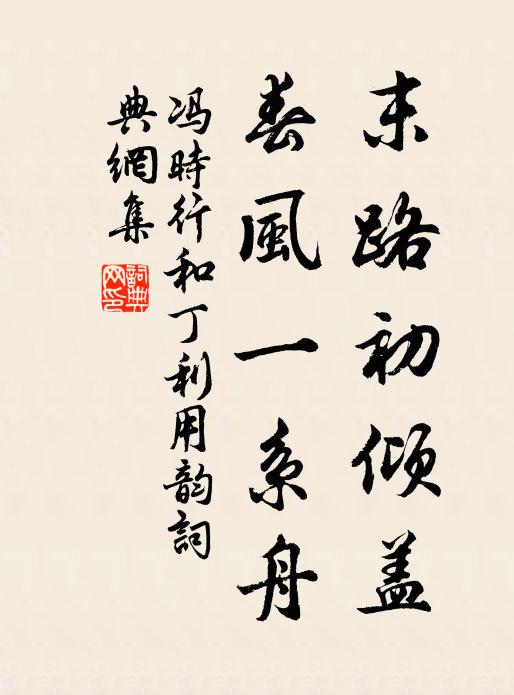 末路初倾盖
春風一系舟
冯時行和丁利用韵詞
典網集
詞典网印